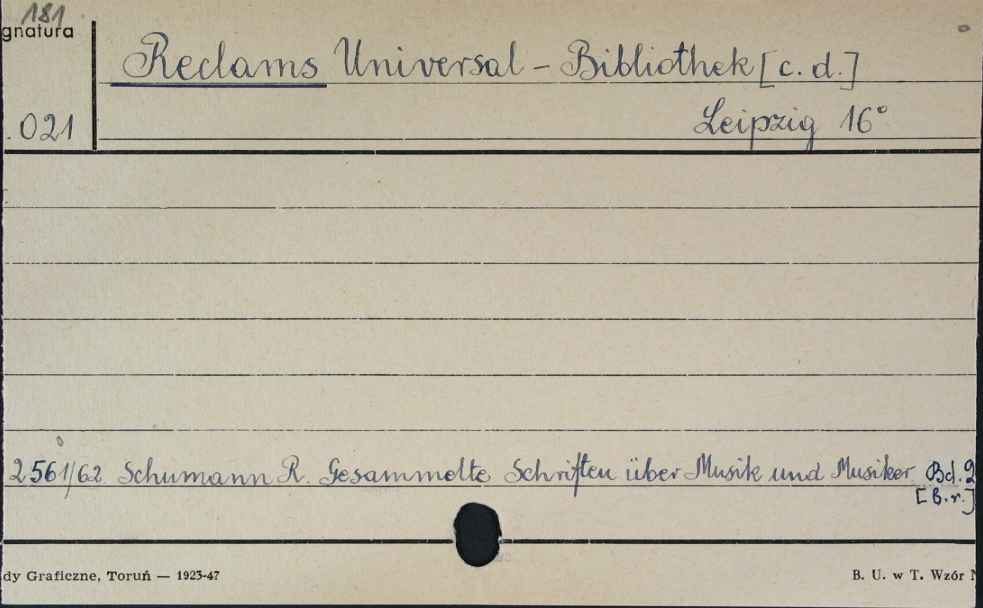 181
gnatura
Reclams Universal - Bibliothek [c. d.]
.021
Leipzig 16°
2561/62 Schumann R. Gesammelte Schriften über Musik und Musiker Bd. 2
[B.r.]
dy Graficzne, Toruń — 1923-47
B. U. w T. Wzór